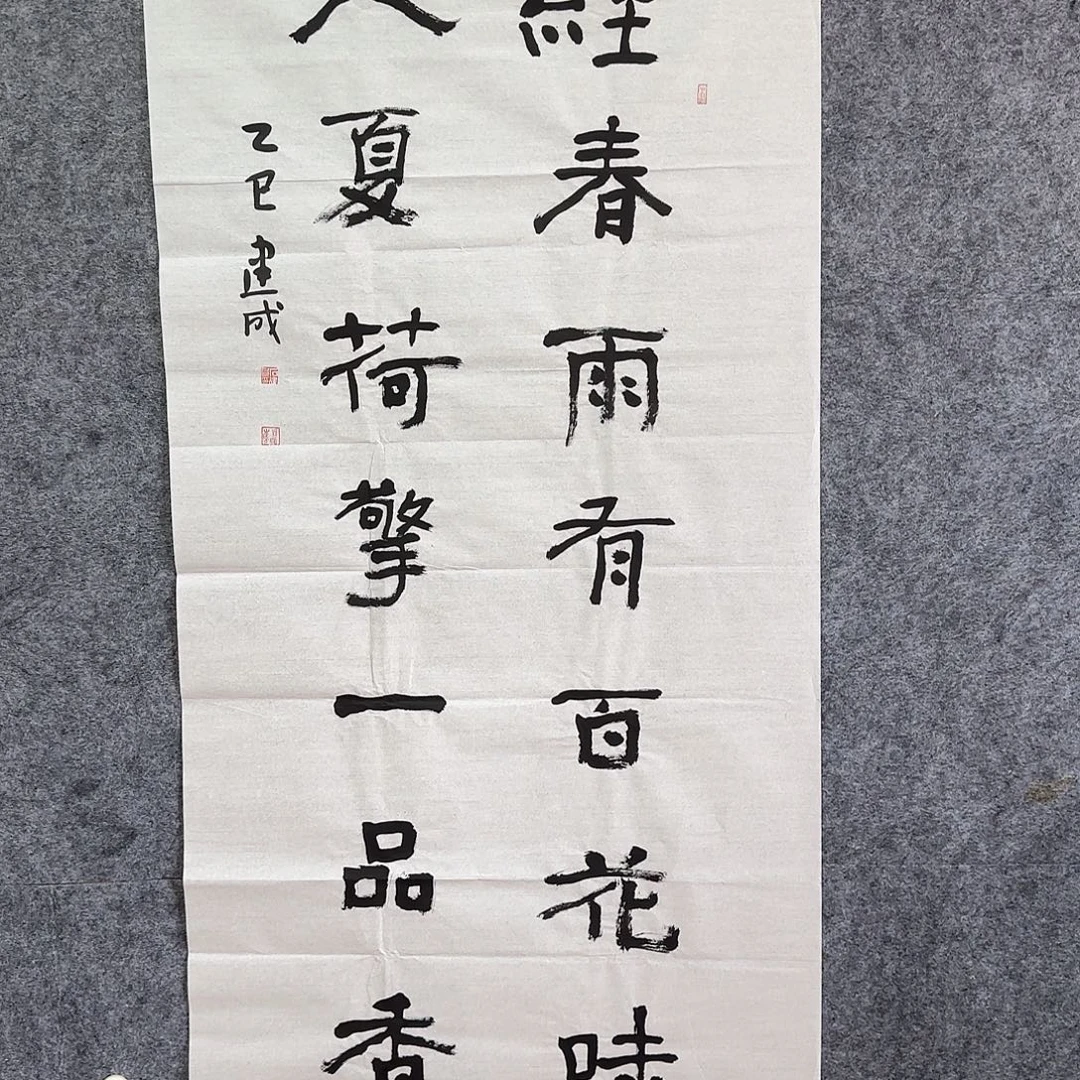 經春雨有百花味
入夏荷擎一品香
乙巳建成